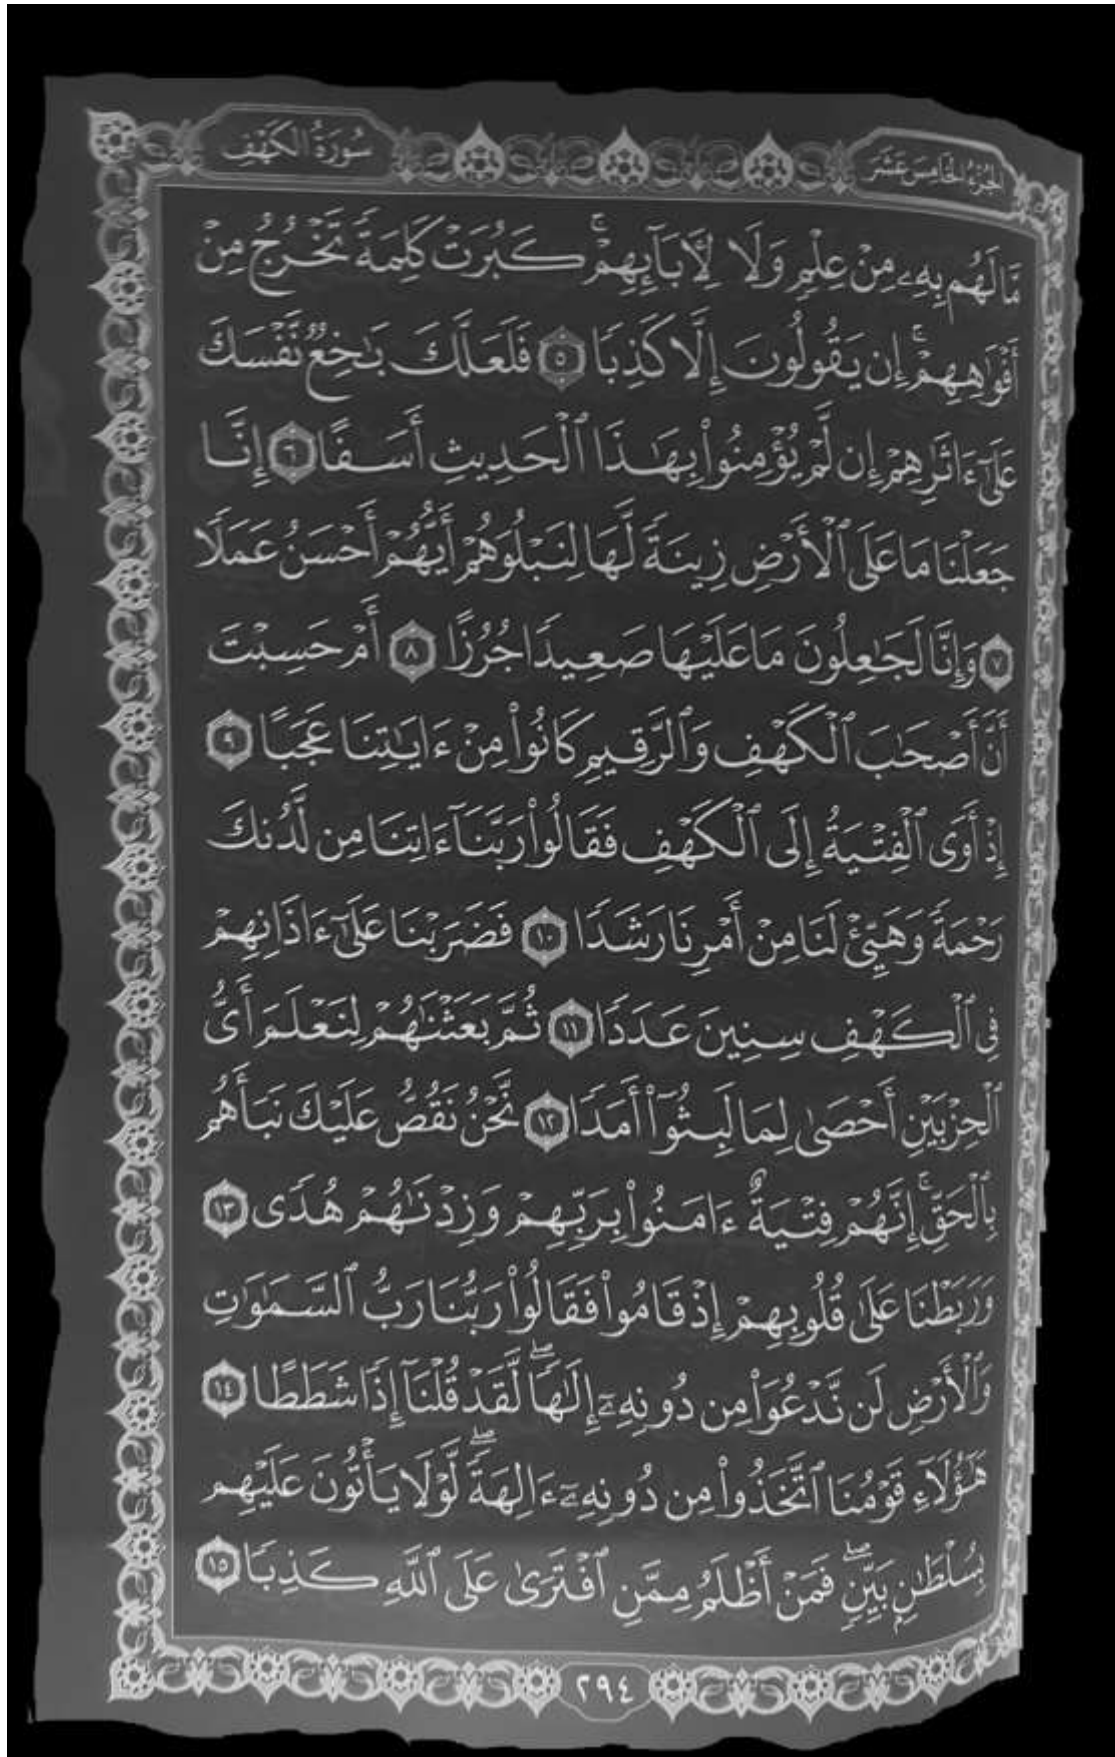 الجزء الخامس عشر
سُورَةُ الكَهْفِ
مَّا لَهُم بِهِۦ مِنْ عِلْمٍ وَلَا لِـَٔابَآئِهِمْ ۚ كَبُرَتْ كَلِمَةً تَخْرُجُ مِنْ
أَفْوَٰهِهِمْ ۚ إِن يَقُولُونَ إِلَّا كَذِبًا ٥ فَلَعَلَّكَ بَـٰخِعٌ نَّفْسَكَ
عَلَىٰٓ ءَاثَـٰرِهِمْ إِن لَّمْ يُؤْمِنُوا۟ بِهَـٰذَا ٱلْحَدِيثِ أَسَفًا ٦ إِنَّا
جَعَلْنَا مَا عَلَى ٱلْأَرْضِ زِينَةً لَّهَا لِنَبْلُوَهُمْ أَيُّهُمْ أَحْسَنُ عَمَلًا
٧ وَإِنَّا لَجَـٰعِلُونَ مَا عَلَيْهَا صَعِيدًا جُرُزًا ٨ أَمْ حَسِبْتَ
أَنَّ أَصْحَـٰبَ ٱلْكَهْفِ وَٱلرَّقِيمِ كَانُوا۟ مِنْ ءَايَـٰتِنَا عَجَبًا ٩
إِذْ أَوَى ٱلْفِتْيَةُ إِلَى ٱلْكَهْفِ فَقَالُوا۟ رَبَّنَآ ءَاتِنَا مِن لَّدُنكَ
رَحْمَةً وَهَيِّئْ لَنَا مِنْ أَمْرِنَا رَشَدًا ١٠ فَضَرَبْنَا عَلَىٰٓ ءَاذَانِهِمْ
فِى ٱلْكَهْفِ سِنِينَ عَدَدًا ١١ ثُمَّ بَعَثْنَـٰهُمْ لِنَعْلَمَ أَىُّ
ٱلْحِزْبَيْنِ أَحْصَىٰ لِمَا لَبِثُوٓا۟ أَمَدًا ١٢ نَّحْنُ نَقُصُّ عَلَيْكَ نَبَأَهُم
بِٱلْحَقِّ ۚ إِنَّهُمْ فِتْيَةٌ ءَامَنُوا۟ بِرَبِّهِمْ وَزِدْنَـٰهُمْ هُدًى ١٣
وَرَبَطْنَا عَلَىٰ قُلُوبِهِمْ إِذْ قَامُوا۟ فَقَالُوا۟ رَبُّنَا رَبُّ ٱلسَّمَـٰوَٰتِ
وَٱلْأَرْضِ لَن نَّدْعُوَا۟ مِن دُونِهِۦٓ إِلَـٰهًا ۖ لَّقَدْ قُلْنَآ إِذًا شَطَطًا ١٤
هَـٰٓؤُلَآءِ قَوْمُنَا ٱتَّخَذُوا۟ مِن دُونِهِۦٓ ءَالِهَةً ۖ لَّوْلَا يَأْتُونَ عَلَيْهِم
بِسُلْطَـٰنٍۭ بَيِّنٍ ۖ فَمَنْ أَظْلَمُ مِمَّنِ ٱفْتَرَىٰ عَلَى ٱللَّهِ كَذِبًا ١٥
٢٩٤